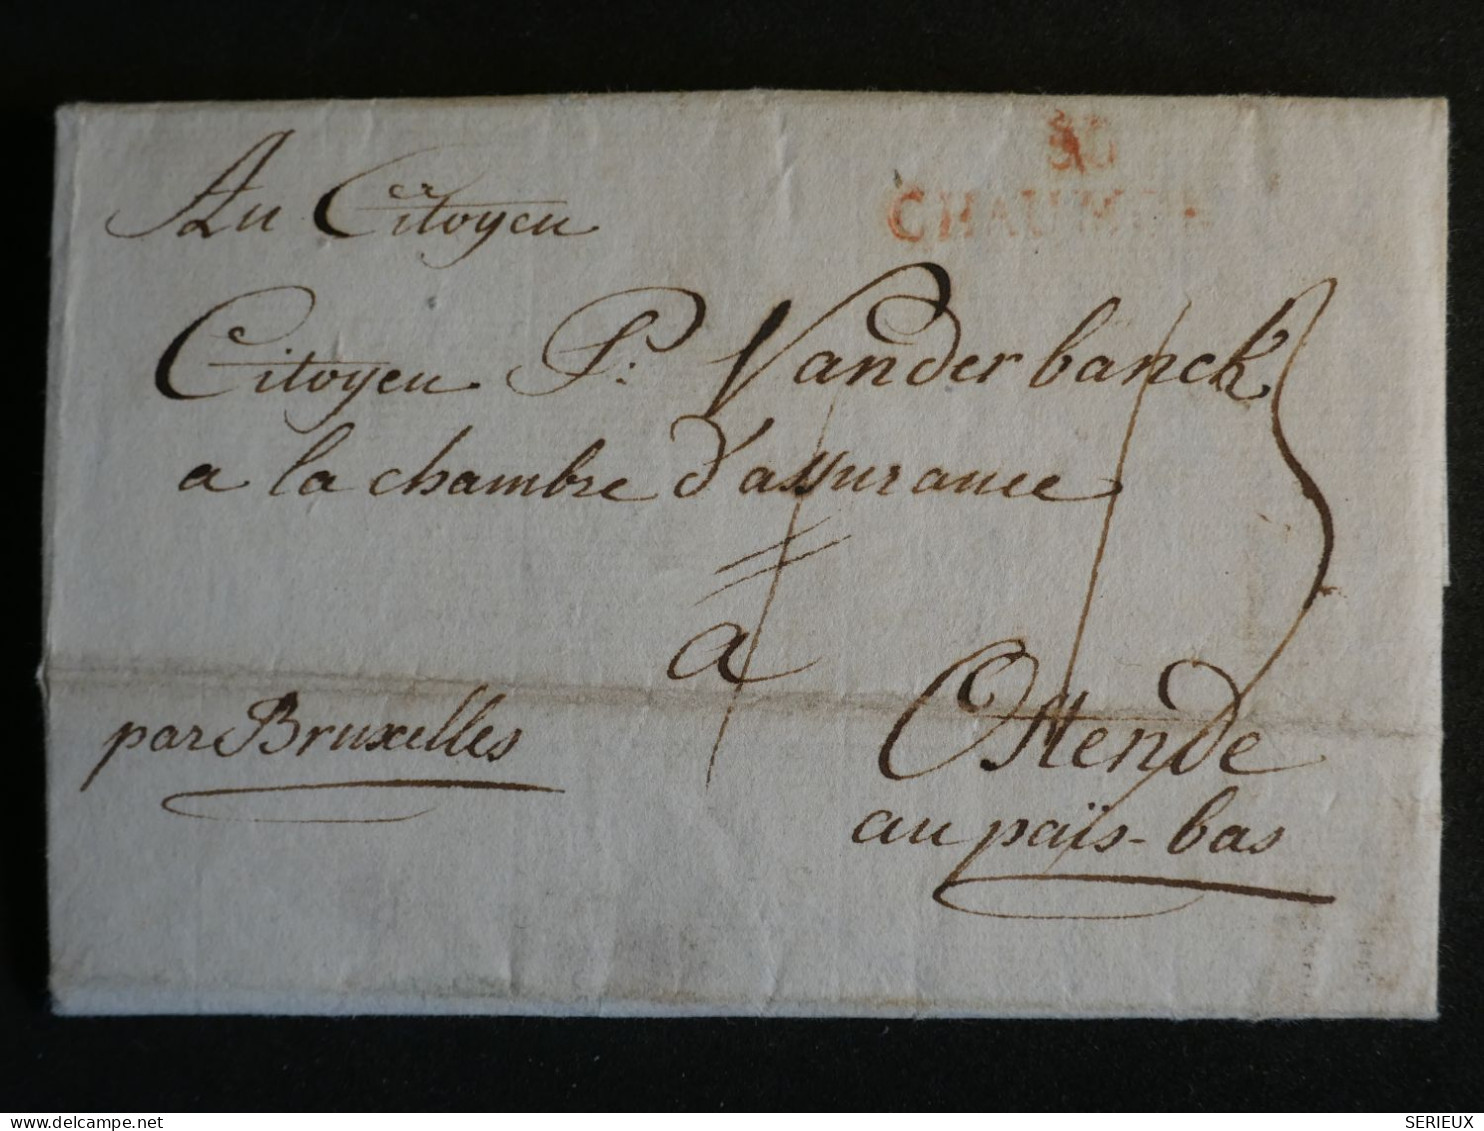 Au Citoyen
CHAUMONT
Citoyen P: Vanderbanck
a la chambre d'assurance
a
par Bruxelles
Ostende
au païs-bas
SERIEUX
delcampe.net